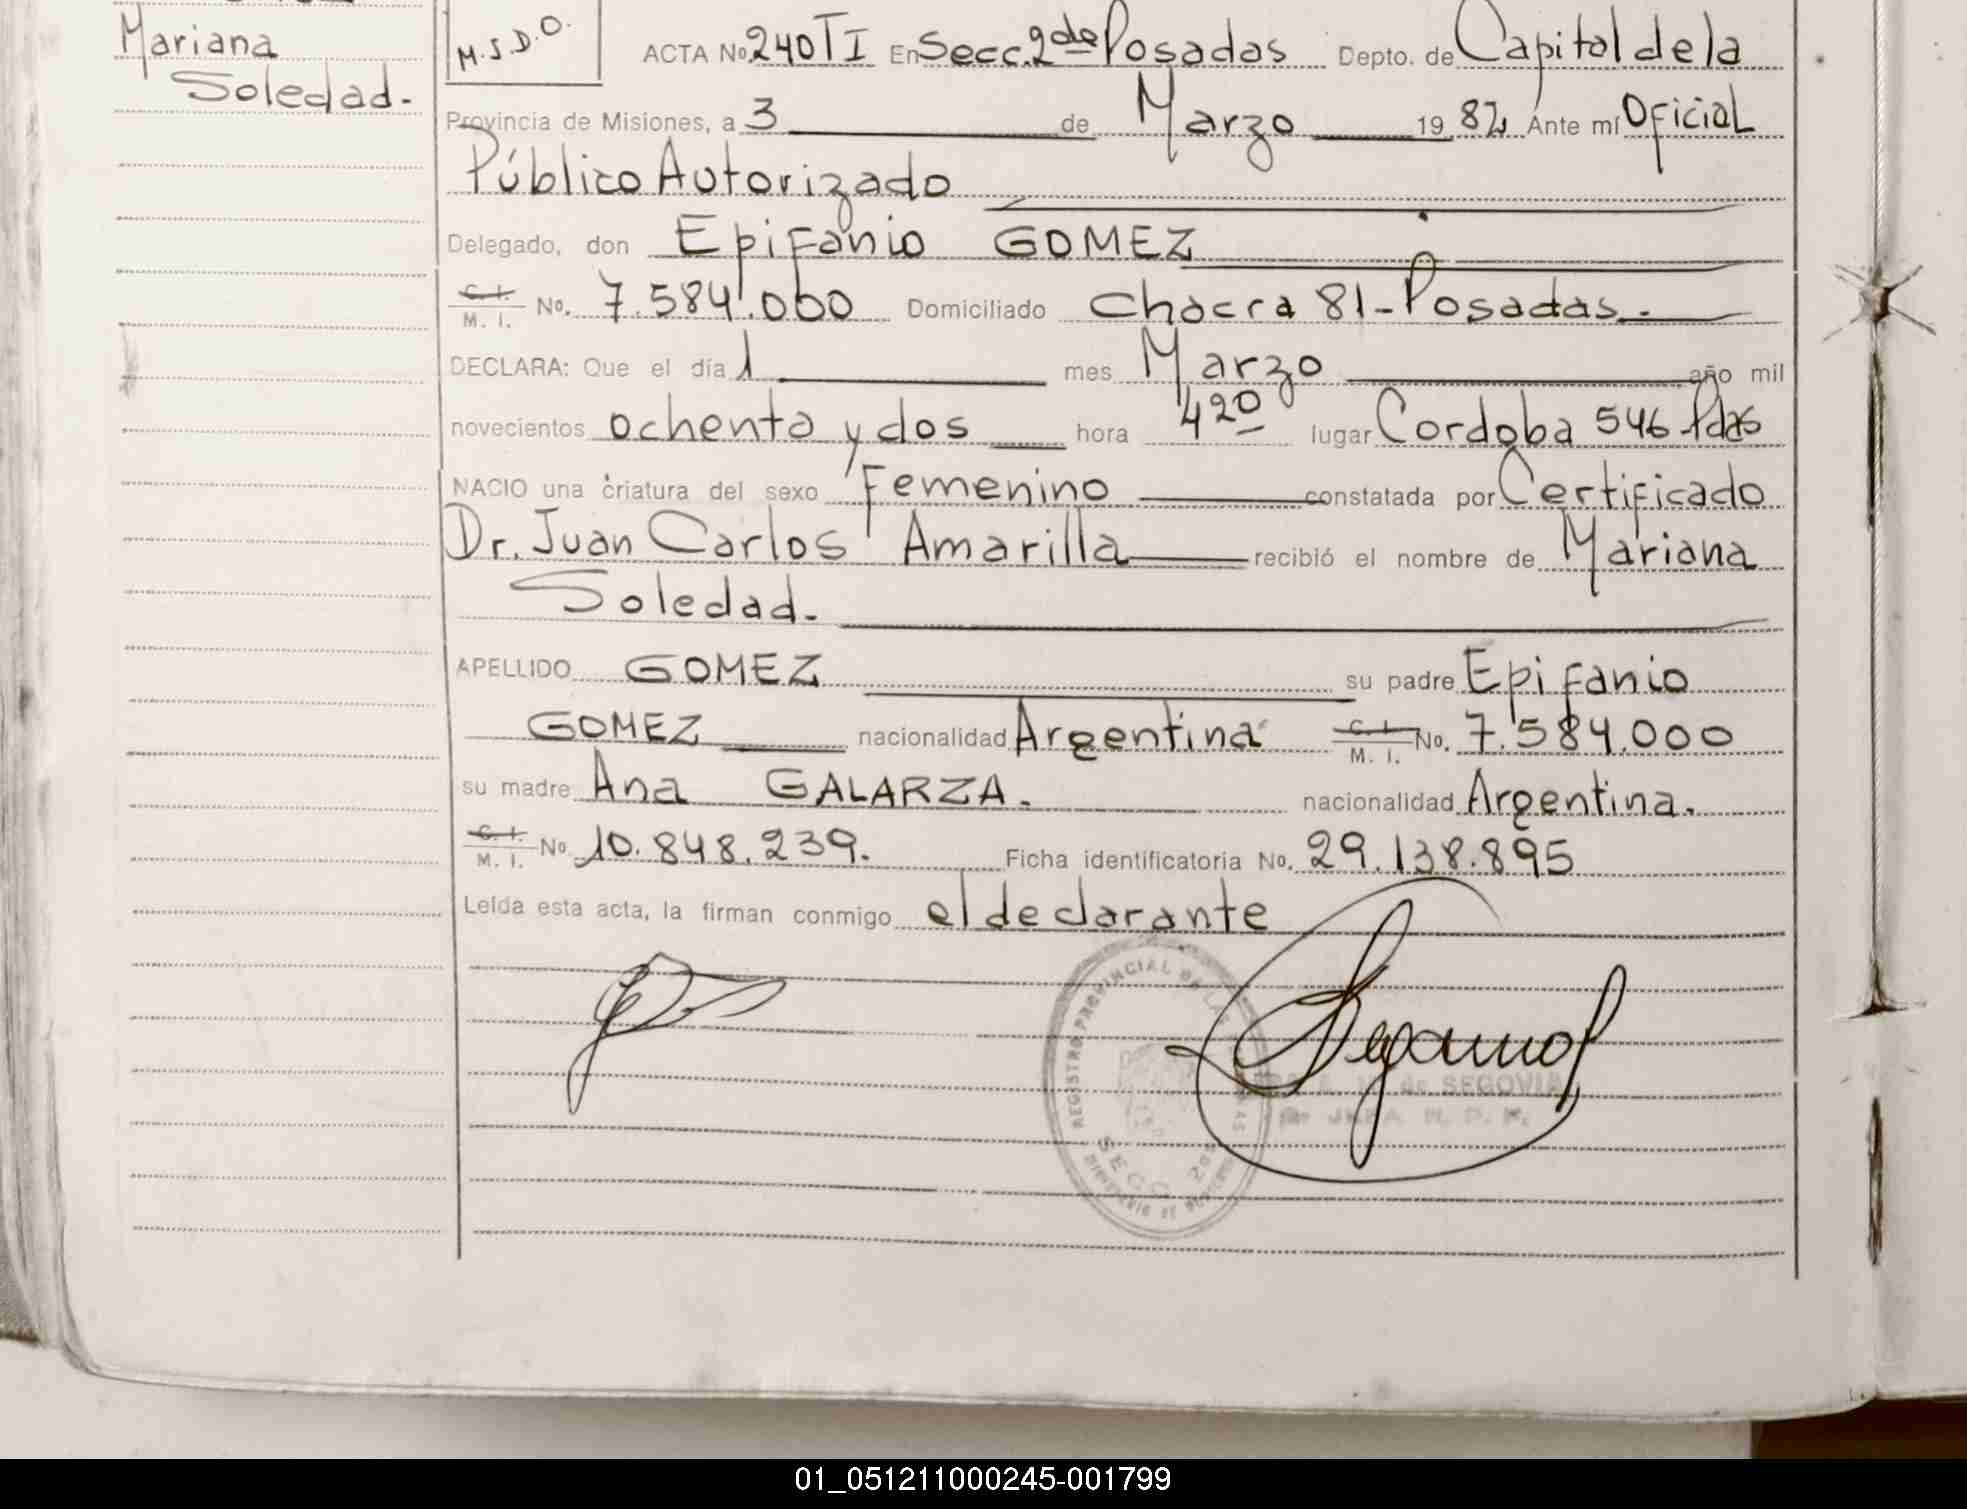 Mariana
Soledad.-
M.S.D.O.
ACTA No. 240 TI En Secc. 2da Posadas Depto. de Capital de la
Provincia de Misiones, a 3 de Marzo 19 82 Ante mí Oficial
Público Autorizado
Delegado, don Epifanio GOMEZ
C. I. M. I. No. 7.584.000 Domiciliado Chacra 81-Posadas.-
DECLARA: Que el día 1 mes Marzo año mil
novecientos ochenta y dos hora 4 20 lugar Cordoba 546 Pdas
NACIO una criatura del sexo Femenino constatada por Certificado
Dr. Juan Carlos Amarilla recibió el nombre de Mariana
Soledad.-
APELLIDO GOMEZ su padre Epifanio
GOMEZ nacionalidad Argentina C. I. M. I. No. 7.584.000
su madre Ana GALARZA. nacionalidad Argentina.
C. I. M. I. No. 10.848.239. Ficha identificatoria No. 29.138.895
Leída esta acta, la firman conmigo el declarante
REGISTRO PROVINCIAL DE LAS
SECC. 2da
de SEGOVIA
01_051211000245-001799